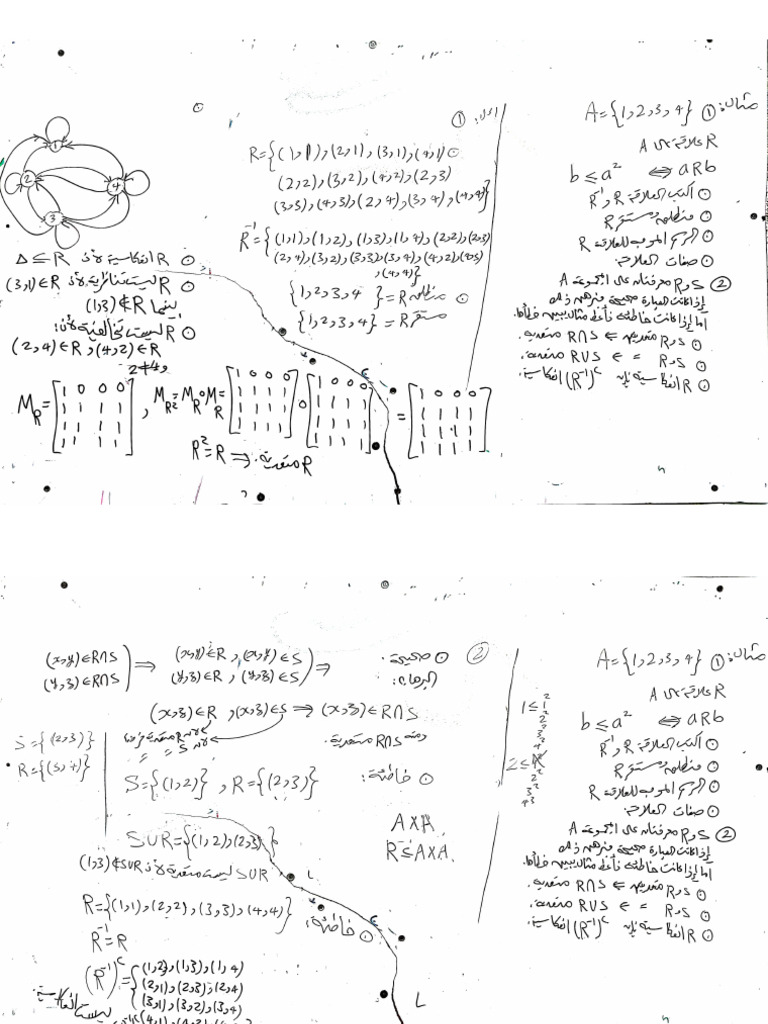 مثال: ① A={1,2,3,4}
R علاقة على A
aRb ⇔ b ≤ a²
⊙ أكتب العلاقة R و R⁻¹
⊙ منطلق ومستقر R
⊙ الرسم الموجه للعلاقة R
⊙ صفات العلاقة.
② R و S معرفتان على المجموعة A
إذا كانت العبارة صحيحة فبرهن ذلك
أما إذا كانت خاطئة فأعط مثال يبين خطأها.
⊙ R و S متعديتين ⇐ R∩S متعدية.
⊙ R و S = = ⇐ R∪S متعدية.
⊙ R انعكاسية فإن (R⁻¹)ᶜ انعكاسية.
الحل: ①
⊙ R={(1,1),(2,1),(3,1),(4,1)
(2,2),(3,2),(4,2),(2,3)
(3,3),(4,3),(2,4),(3,4),(4,4)}
R⁻¹={(1,1),(1,2),(1,3),(1,4),(2,2),(2,3)
(2,4),(3,2),(3,3),(3,4),(4,2),(4,3)
,(4,4)}
⊙ منطلق R = {1,2,3,4}
مستقر R = {1,2,3,4}
1
2
3
4
⊙ R انعكاسية لأن Δ ⊆ R
⊙ R ليست تناظرية لأن (3,1)∈R
بينما (1,3)∉R
⊙ R ليست تخالفية لأن:
(2,4)∈R , (4,2)∈R
2≠4
M_R = [1 0 0 0 / 1 1 1 1 / 1 1 1 1 / 1 1 1 1] , M_R² = M_R ∘ M_R = [1 0 0 0 / 1 1 1 1 / 1 1 1 1 / 1 1 1 1] ∘ [1 0 0 0 / 1 1 1 1 / 1 1 1 1 / 1 1 1 1] = [1 0 0 0 / 1 1 1 1 / 1 1 1 1 / 1 1 1 1]
R²=R ⇒ R متعدية.
مثال: ① A={1,2,3,4}
R علاقة على A
aRb ⇔ b ≤ a²
⊙ أكتب العلاقة R و R⁻¹
⊙ منطلق ومستقر R
⊙ الرسم الموجه للعلاقة R
⊙ صفات العلاقة.
② R و S معرفتان على المجموعة A
إذا كانت العبارة صحيحة فبرهن ذلك
أما إذا كانت خاطئة فأعط مثال يبين خطأها.
⊙ R و S متعديتين ⇐ R∩S متعدية.
⊙ R و S = = ⇐ R∪S متعدية.
⊙ R انعكاسية فإن (R⁻¹)ᶜ انعكاسية.
1 ≤ 1²
2²
3²
4²
2 ≤
2²
3²
4²
② ⊙ صحيحة.
البرهان:
(x,y)∈R∩S
(y,z)∈R∩S ⇒ (x,y)∈R , (x,y)∈S
(y,z)∈R , (y,z)∈S ⇒
(x,z)∈R , (x,z)∈S ⇒ (x,z)∈R∩S
لأن R متعدية
لأن S " "
ومنه R∩S متعدية.
⊙ خاطئة:
S={(1,2)} , R={(2,3)}
S={(2,3)}
A×A
R⊆A×A.
S∪R={(1,2),(2,3)}
S∪R ليست متعدية لأن (1,3)∉S∪R
⊙ خاطئة:
R={(1,1),(2,2),(3,3),(4,4)}
R⁻¹=R
(R⁻¹)ᶜ={(1,2),(1,3),(1,4)
(2,1),(2,3),(2,4)
(3,1),(3,2),(3,4)
ليست انعكاسية.